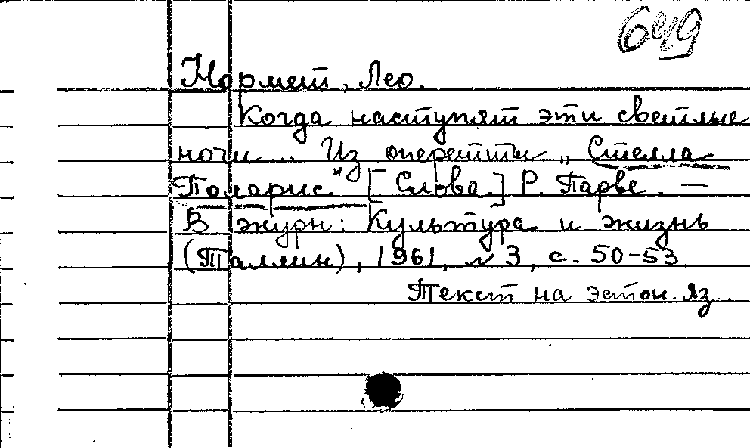 649
Нормет, Лео.
Когда наступят эти светлые
ночи... Из оперетты „Стелла
Поларис" [Слова] Р. Парве. —
В журн: Культура и жизнь
(Таллин), 1961, № 3, с. 50-53
Текст на эстон. яз